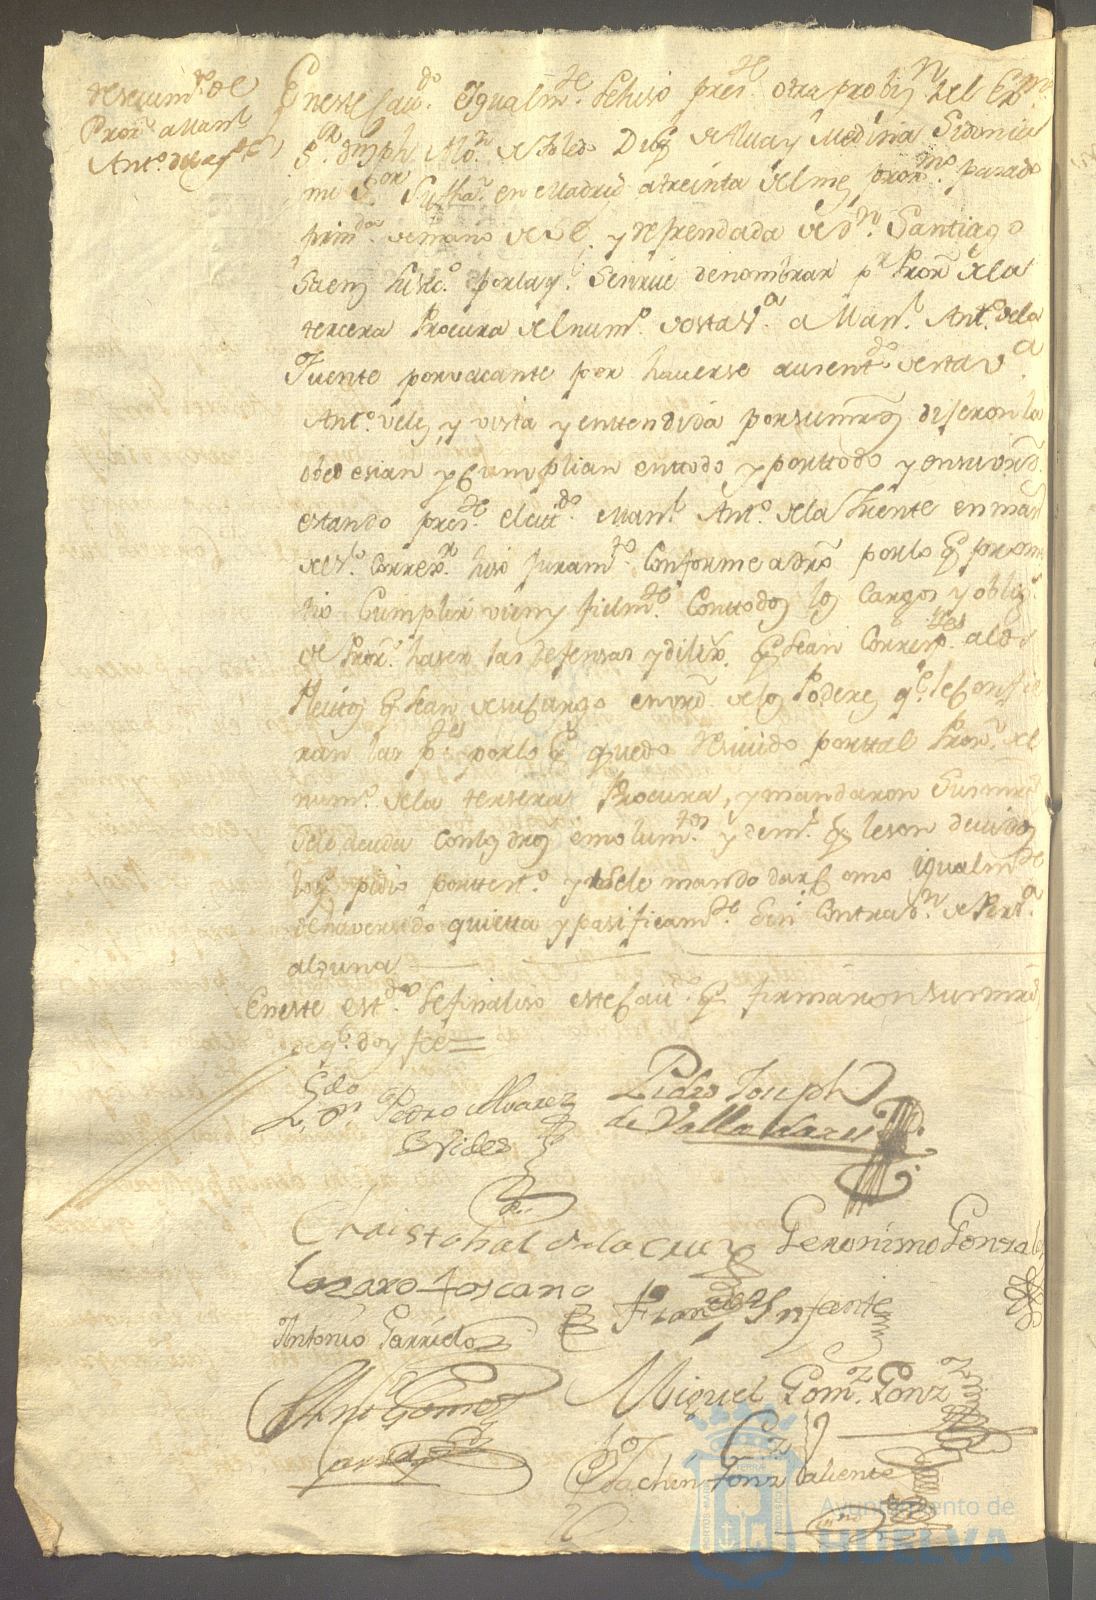 de
Pror. a Man.l
Ant.o de la
En este Cau.do Igualm.te se hiso pres.te otra probi.n del Exmo
S.or Dn Jph Alb.z de Toledo Duq de Alva y Medina Sidonia
mi S.or Su tha. en Madrid a treinta del mes prox.mo pasado
firm.da de mano de S.E. y refrendada de Dn. Santiago
Saenz su Sec.o por la q.e se sirve de nombrar p.r Pror. de la
tercera Procura del num.o de esta V.a a Man.l Ant.o de la
Fuente por vacante por haverse ausent.do de esta V.a
Ant.o Veles y vista y entendida por sus mrds dijeron la
obedesian y Cumplian en todo y por ttodo y en su vird.
estando pres.te el cit.do Man.l Ant.o de la Fuente en man.
del S.r Correx.r hiso Juram.to Conforme a dro. por lo q prome
tio Cumplir vien y fielm.te Con ttodos los Cargos y oblig.s
de Pror. haser las defensas y dilix. q sean Corresp.tes a los
Pleitos q sean de su Cargo en vird. de los Poderes q.e le Confie
ran las p.tes por lo q quedo resevido por tal Pror. del
num.o de la tersera Procura, y mandaron Sus mrds
se le acuda con los dros emolum.tos y dem.s q le son devidos
lo q pidio por test.o y se le mando dar Como igualm.te
de haver sido quietta y pasificam.te Sin Contrad.n de Pers.a
alguna
En este est.do se finaliso este Cau.do q firmaron sus mrds
de q.e doy fee
L.do Dn. Pedro Alvarez
Vides
Pedro Joseph
de Valladares
Christobal de la Cruz
Geronimo Gonzales
Lazaro toscano
Fran.co Infante
Antonio Garrido
Miguel Gom.z Gonz.z
Ant.o Gomez
Joachin Gonz.z Valiente
Ayuntamiento de
HUELVA